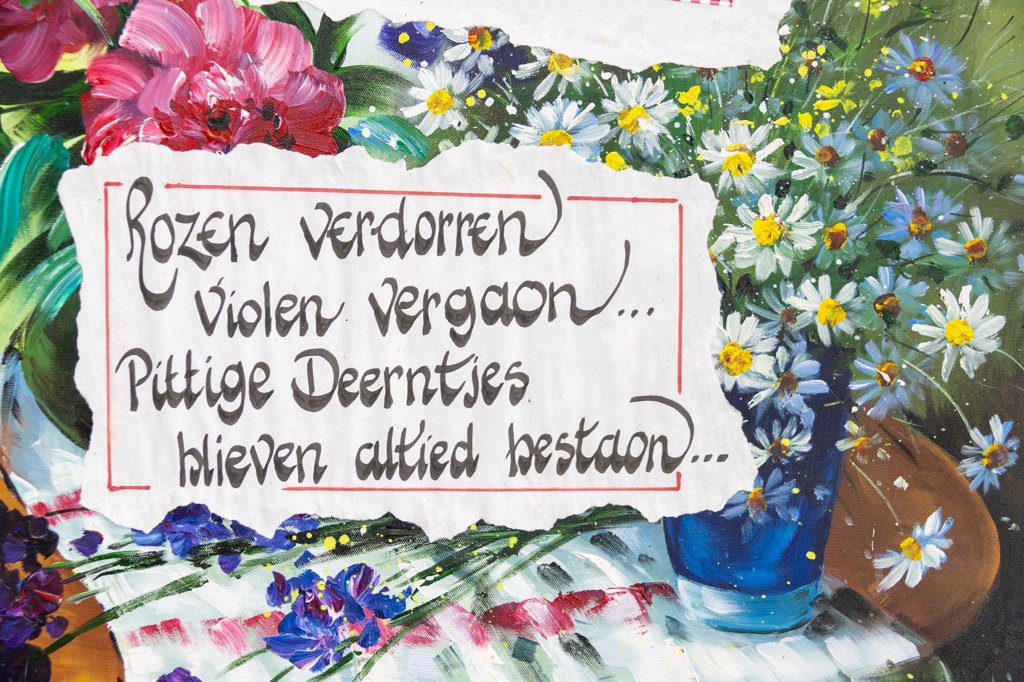 Rozen verdorren
violen vergaon...
Pittige Deerntjes
blieven altied bestaon...